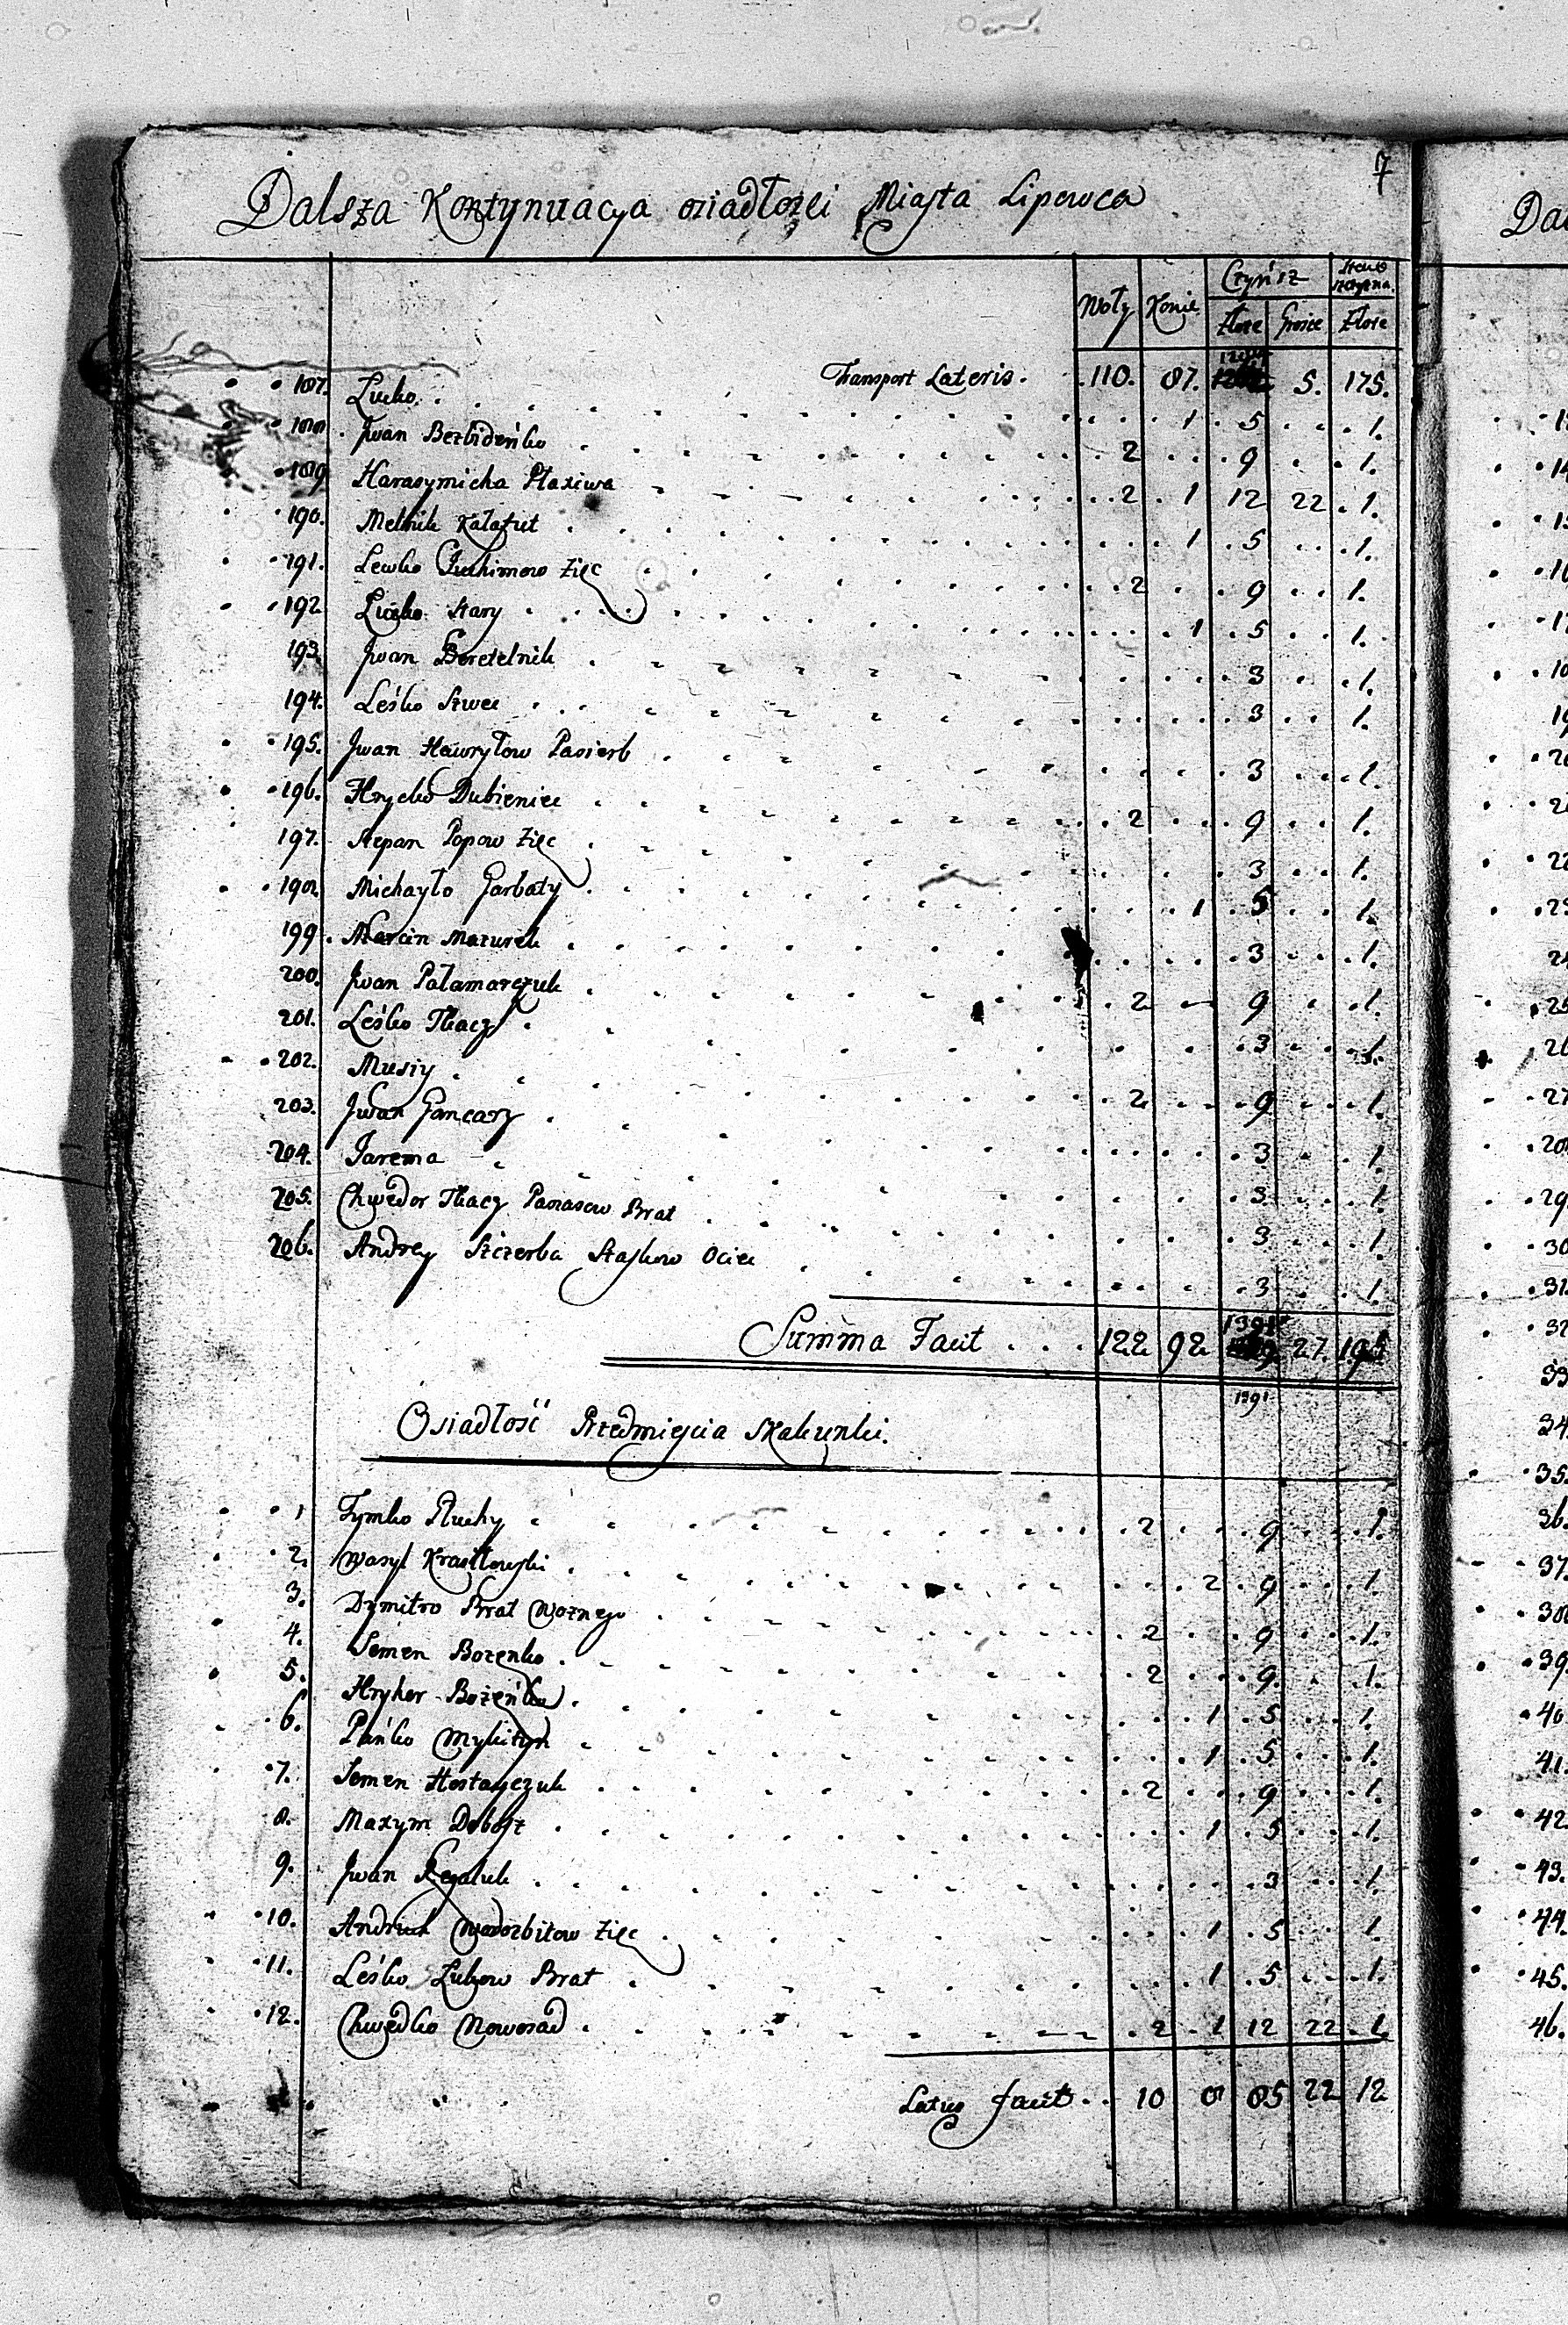 7
Dalsza Kontynuacya osiadłości Miasta Lipowca
Woły Konie Czynsz
Złote Grosze Złote
Transport Lateris . 110. 87. 5. 175.
187. Lucko . 1 . 5 . 1.
188. Jwan Bezbideńko . 2 . 9 . 1.
189. Harasymicha Płaxiwa . 2 . 1 12 22 . 1.
190. Melnik Kałafut . 1 . 5 . 1.
191. Lewko Juchimow Zięc . 2 . 9 . 1.
192 Lucko Stary . 1 . 5 . 1.
193. Jwan Beretelnik . 3 . 1.
194. Leśko Szwec . 3 . 1.
195. Jwan Hawryłow Pasierb . 3 . 1.
196. Hrycko Dubieniec . 2 . 9 . 1.
197. Stepan Popow Zięc . 3 . 1.
198. Michayło Garbaty . 1 . 5 . 1.
199. Marcin Mazurek . 3 . 1.
200. Jwan Pałamarczuk . 2 . 9 . 1.
201. Leśko Tkacz . 3 . 1.
202. Musiy . 2 . 9 . 1.
203. Jwan Gancarz . 3 . 1.
204. Jarema . 3 . 1.
205. Chwedor Tkacz Panasow Brat . 3 . 1.
206. Andrey Szczerba Staskow Ociec . 3 . 1.
Summa Facit . . . 122 92 1391 27. 195
1391
Osiadłość Przedmieścia Skakunki.
1 Tymko Pluchy . 2 . 9 . 1.
2. Wasyl . 2 . 9 . 1.
3. Dymitro Brat Woznego . 2 . 9 . 1.
4. Semen Bozenko . 2 . 9 . 1.
5. Hryhor Bozeńko . 1 . 5 . 1.
6. Pańko Mykityn . 1 . 5 . 1.
7. Semen . 2 . 9 . 1.
8. Maxym Dobosz . 1 . 5 . 1.
9. Jwan . 3 . 1.
10. Andruch Zięc . 1 . 5 . 1.
11. Leśko Łukow Brat . 1 . 5 . 1.
12. Chwedko Nowosad . 2 . 1 12 22 . 1.
Latus facit . . 10 8 85 22 12